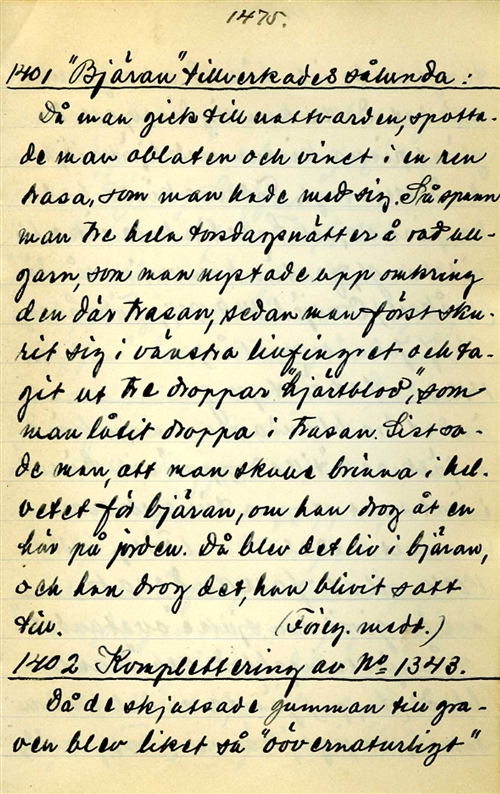 1475.
1401 "Bjäran" tillverkades sålunda:
Då man gick till nattvarden, spotta-
de man oblaten och vinet i en ren
trasa, som man hade med sig. Så spann
man tre hela torsdagsnätter å rad ull-
garn, som man nystade upp omkring
den där trasan, sedan man först sku-
rit sig i vänstra livfingret och ta-
git ut tre droppar "hjärtblod", som
man låtit droppa i trasan. Sist sa-
de man, att man skulle brinna i hel-
vetet för bjäran, om han drog åt en
här på jorden. Då blev det liv i bjäran,
och han drog det, han blivit satt
till. (Föreg. medd.)
1402 Komplettering av No 1343.
Då de skjutsade gumman till gra-
ven blev liket så "oövernaturligt"